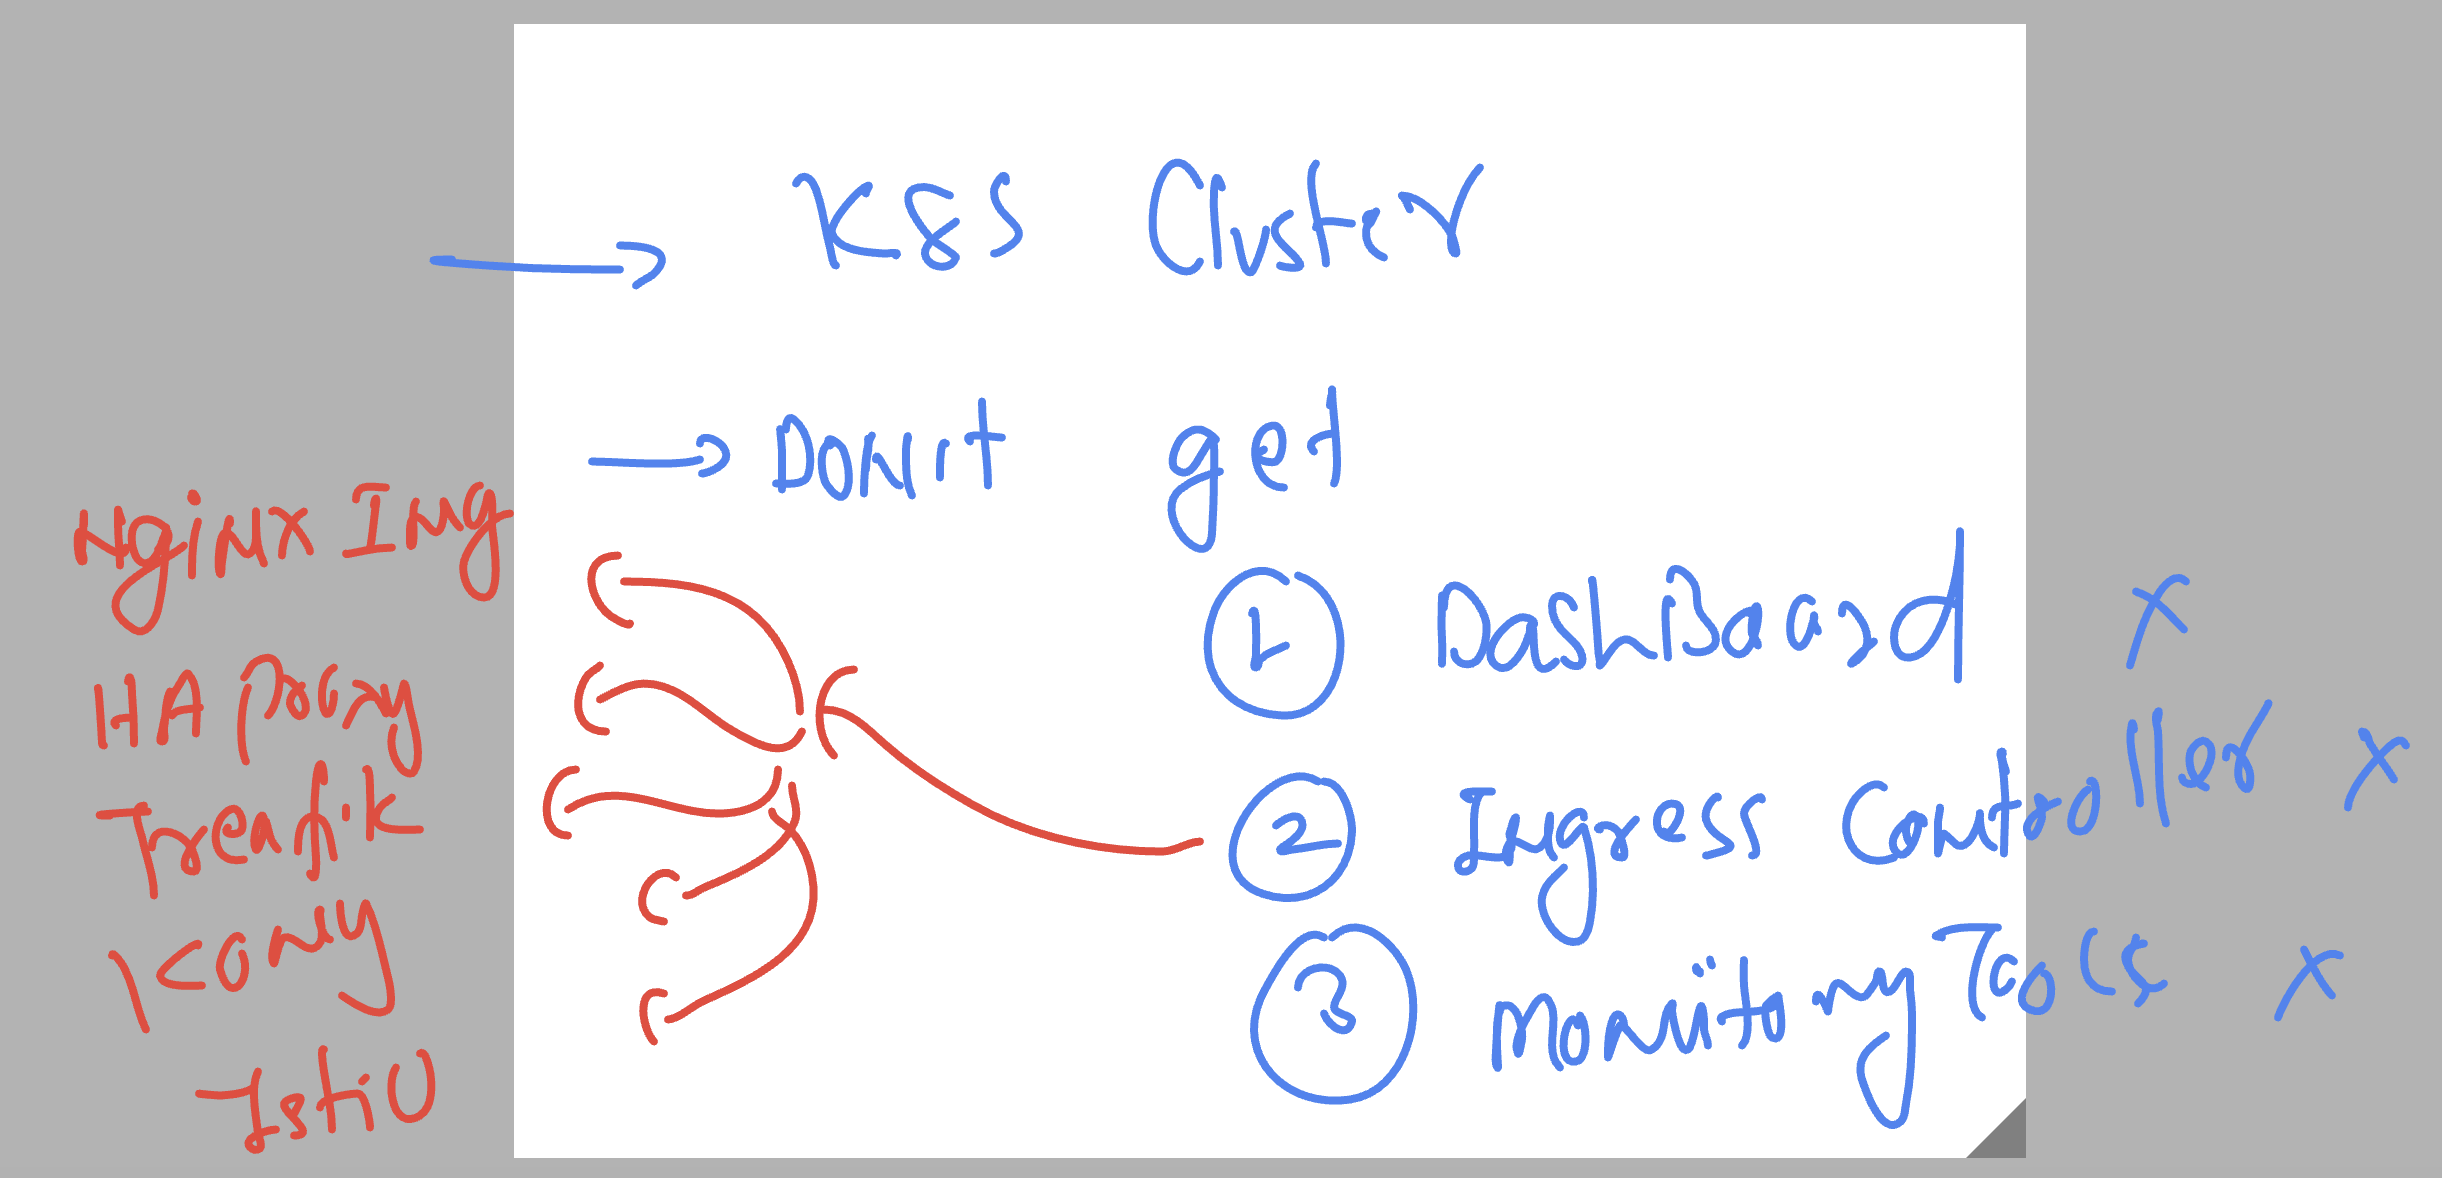 K8S Cluster
Don't get
1 Dashboard x
2 Ingress Controller x
3 Monitoring Tools x
Nginx Ing
HA Proxy
Treafik
Kong
Istio